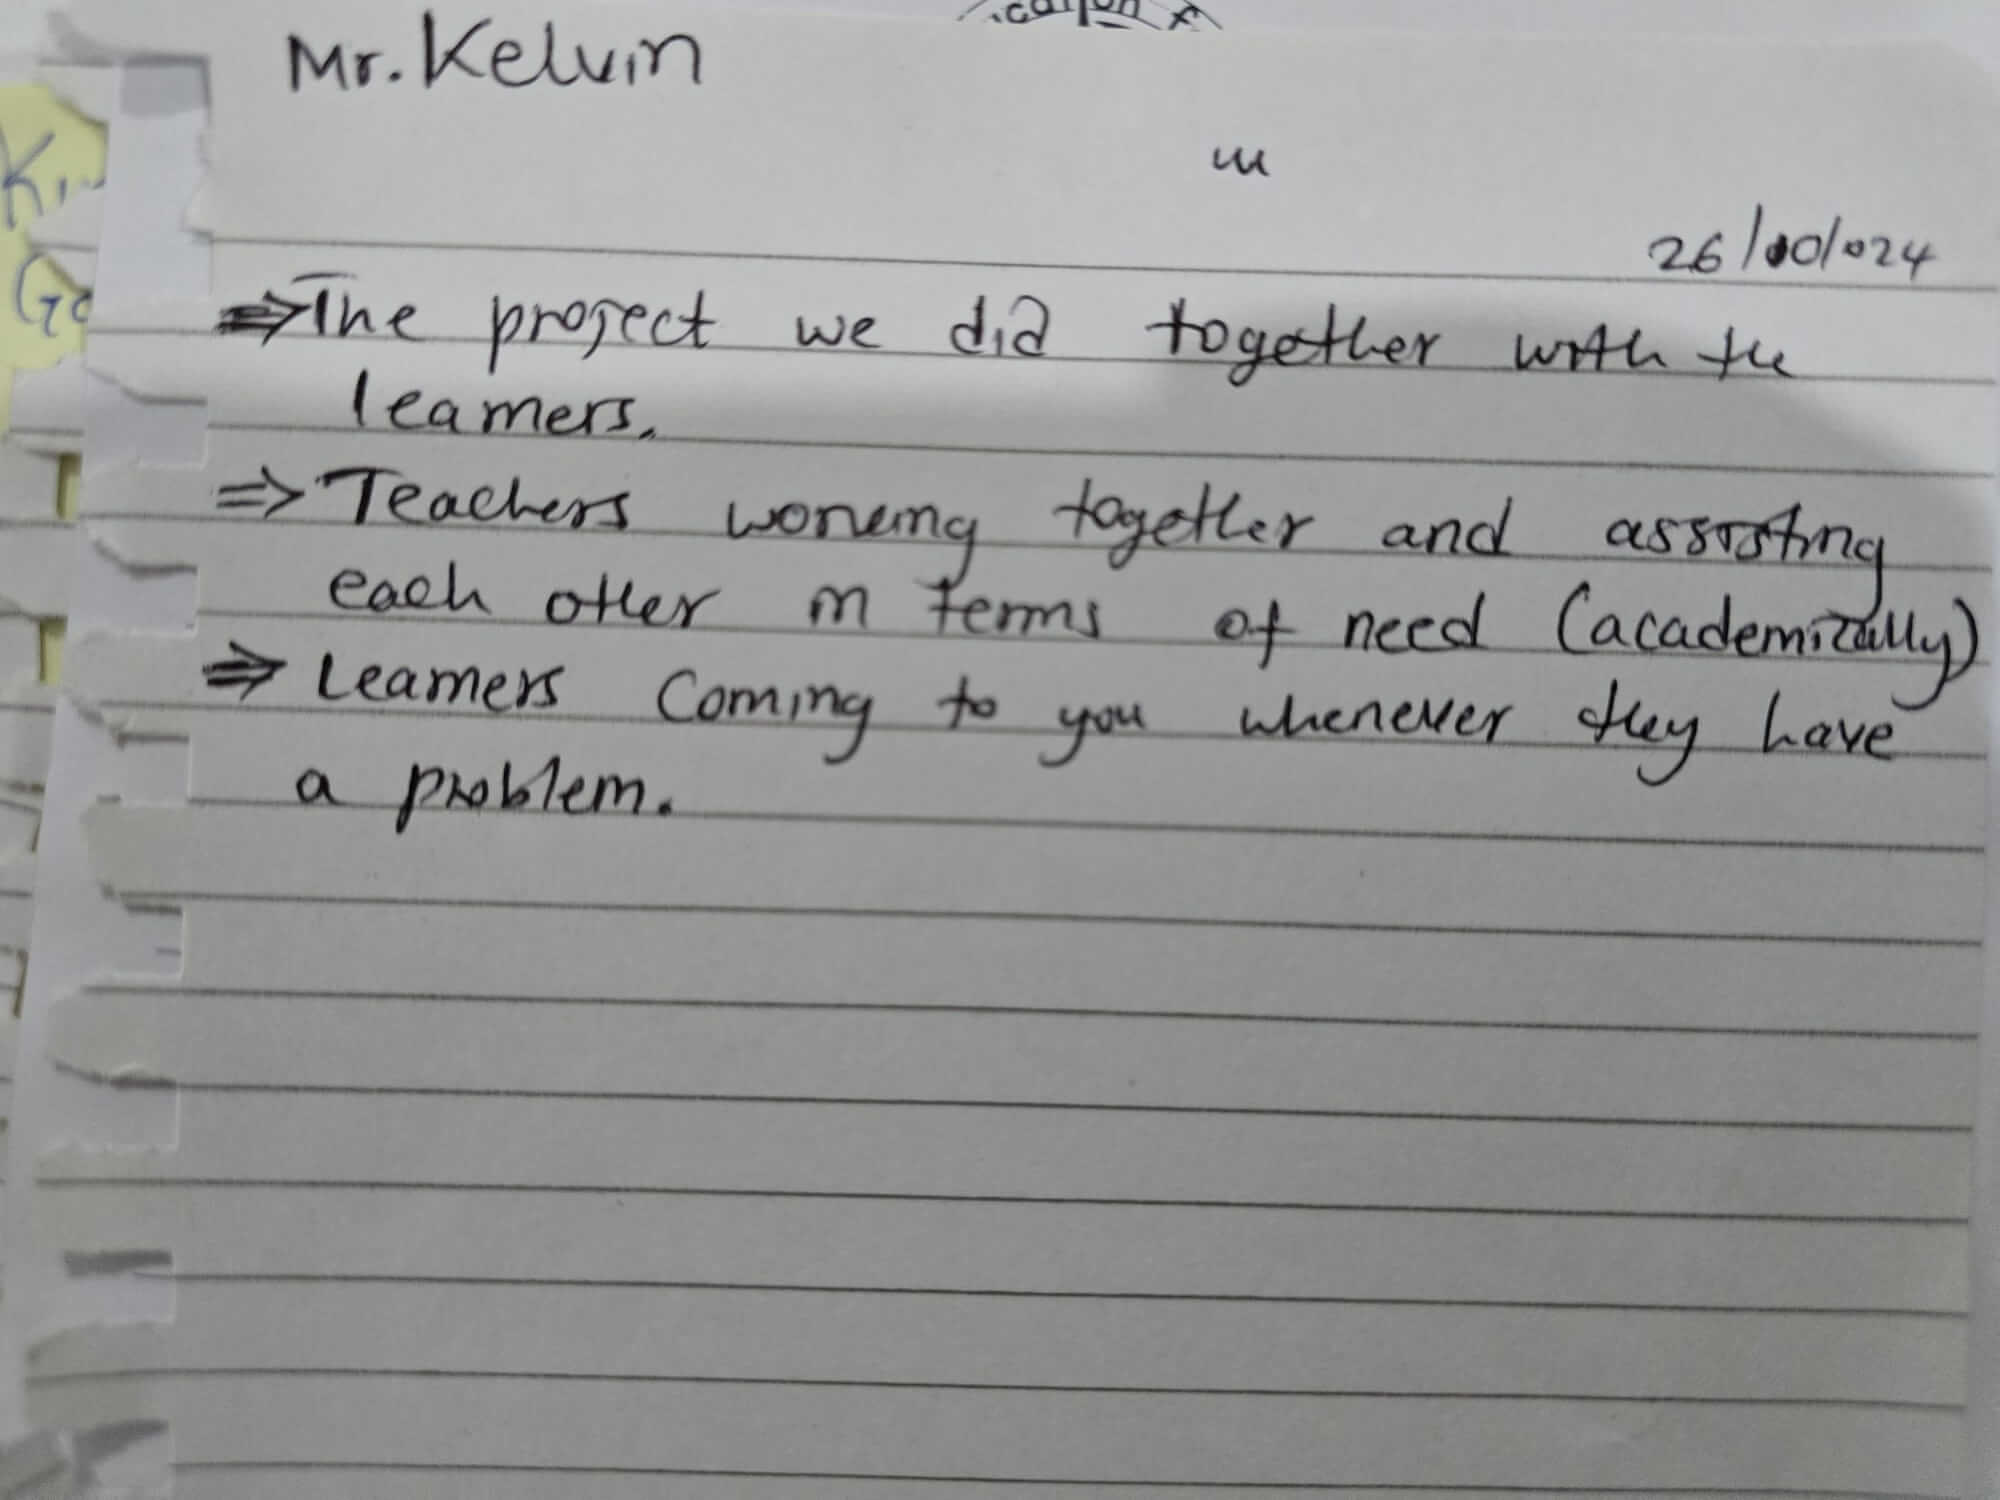 Mr. Kelvin
26/10/024
⇒ The project we did together with the
learners.
⇒ Teachers working together and assisting
each other in terms of need (academically)
⇒ Learners coming to you whenever they have
a problem.